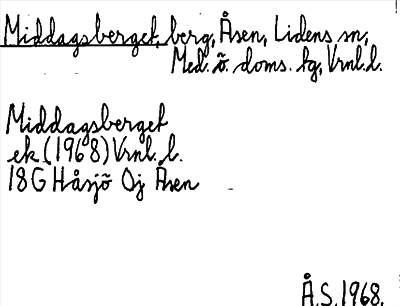 Middagsberget, berg, Åsen, Lidens sn,
Med. ö. doms. tg, Vrnl. l.
Middagsberget
ek (1968) Vrnl. l.
18G Håsjö Oj Åsen
Å.S. 1968.